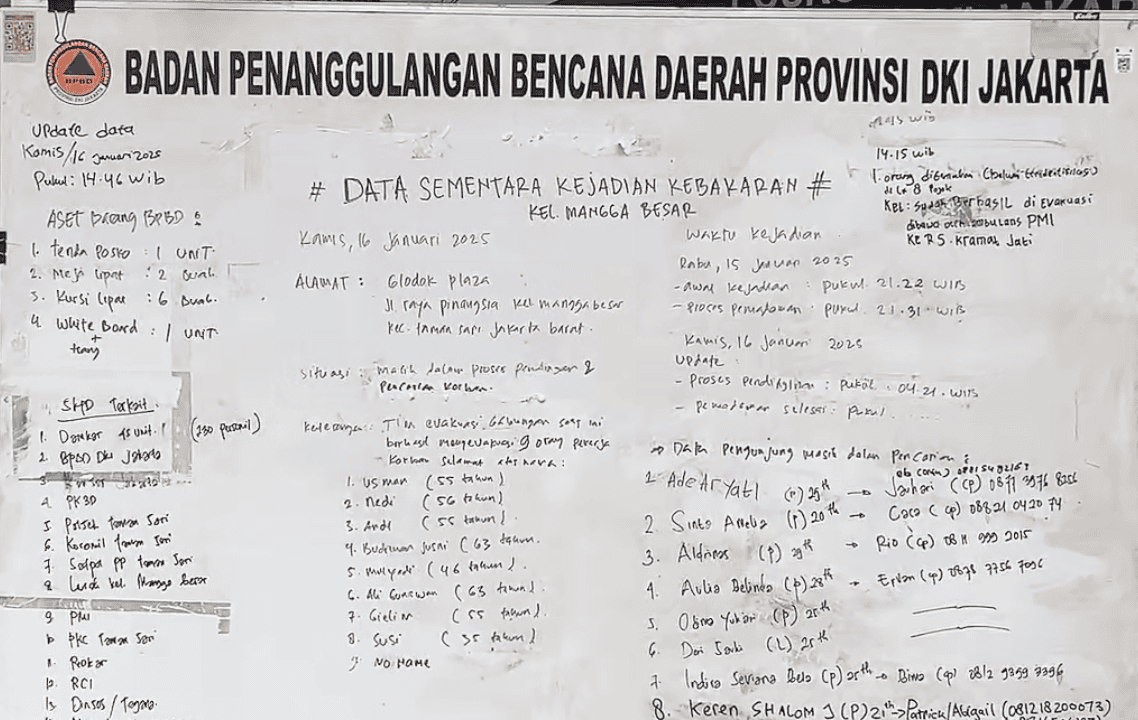 BPBD
BADAN PENANGGULANGAN BENCANA DAERAH PROVINSI DKI JAKARTA
Update data
Kamis/16 Januari 2025
Pukul: 14.46 WIB
ASET Barang BPBD :
1. Tenda Posko : 1 UNIT
2. Meja Lipat : 2 Buah
3. Kursi Lipat : 6 Buah.
4. White Board : 1 UNIT
+
tiang
SKPD Terkait
1. Damkar 45 Unit. (230 personil)
2. BPBD Dki Jakarta
4 PK3D
5 Polsek taman Sari
6. Koramil taman Sari
7. Satpol PP taman Sari
8. Lurah kel. Mangga besar
9. PMI
10 PKC Taman Sari
12. RCI
13 Dinsos / Tagana
# DATA SEMENTARA KEJADIAN KEBAKARAN #
KEL. MANGGA BESAR
Kamis, 16 Januari 2025
ALAMAT : Glodok plaza
Jl. raya pinangsia kel. mangga besar
kec. taman sari jakarta barat.
Situasi : masih dalam proses pendingan &
Pencarian korban.
Keterangan : Tim evakuasi gabungan saat ini
berhasil mengevakuasi 9 orang pekerja
- korban selamat atas nama :
1. Usman (55 tahun)
2. Nedi (56 tahun)
3. Andi (55 tahun)
4. Budiman Jusni (63 tahun.
5. Mulyadi (46 tahun)
6. Ali Gunawan (63 tahun)
7. (55 tahun)
8. Susi (35 tahun)
9. NO NAME
14.15 wib
1. orang ditemukan
di Lt 8
Ket: Sudah Berhasil di Evakuasi
dibawa oleh ambulans PMI
Ke RS. Kramat Jati
Waktu Kejadian
Rabu, 15 Januari 2025
- awal kejadian : pukul 21.22 WIB
- Proses pemadaman : pukul 21.31 WIB
Kamis, 16 Januari 2025
Update :
- Proses pendinginan : pukul : 04.21. WIB
- Pemadaman selesai : pukul .....
⇒ Data Pengunjung masih dalam Pencarian :
1. Ade Aryati (P) 29th → Jauhari (CP) 0877 3976 8256
2. Sinta Amelia (P) 20th → Caca (CP) 08821 0420 74
3. (P) 29th → Rio (CP) 0811 999 2015
4. Aulia Belinda (P) 28th → Ervan (CP) 0878 7756 7096
5. Osima Yukari (P) 25th
6. Deri Saiki (L) 25th
7. Indira Seviana Bela (P) 25th → Bima (CP) 0812 9359 3396
8. Keren SHALOM J (P) 21th → Patrick/Abigail (081218200073)